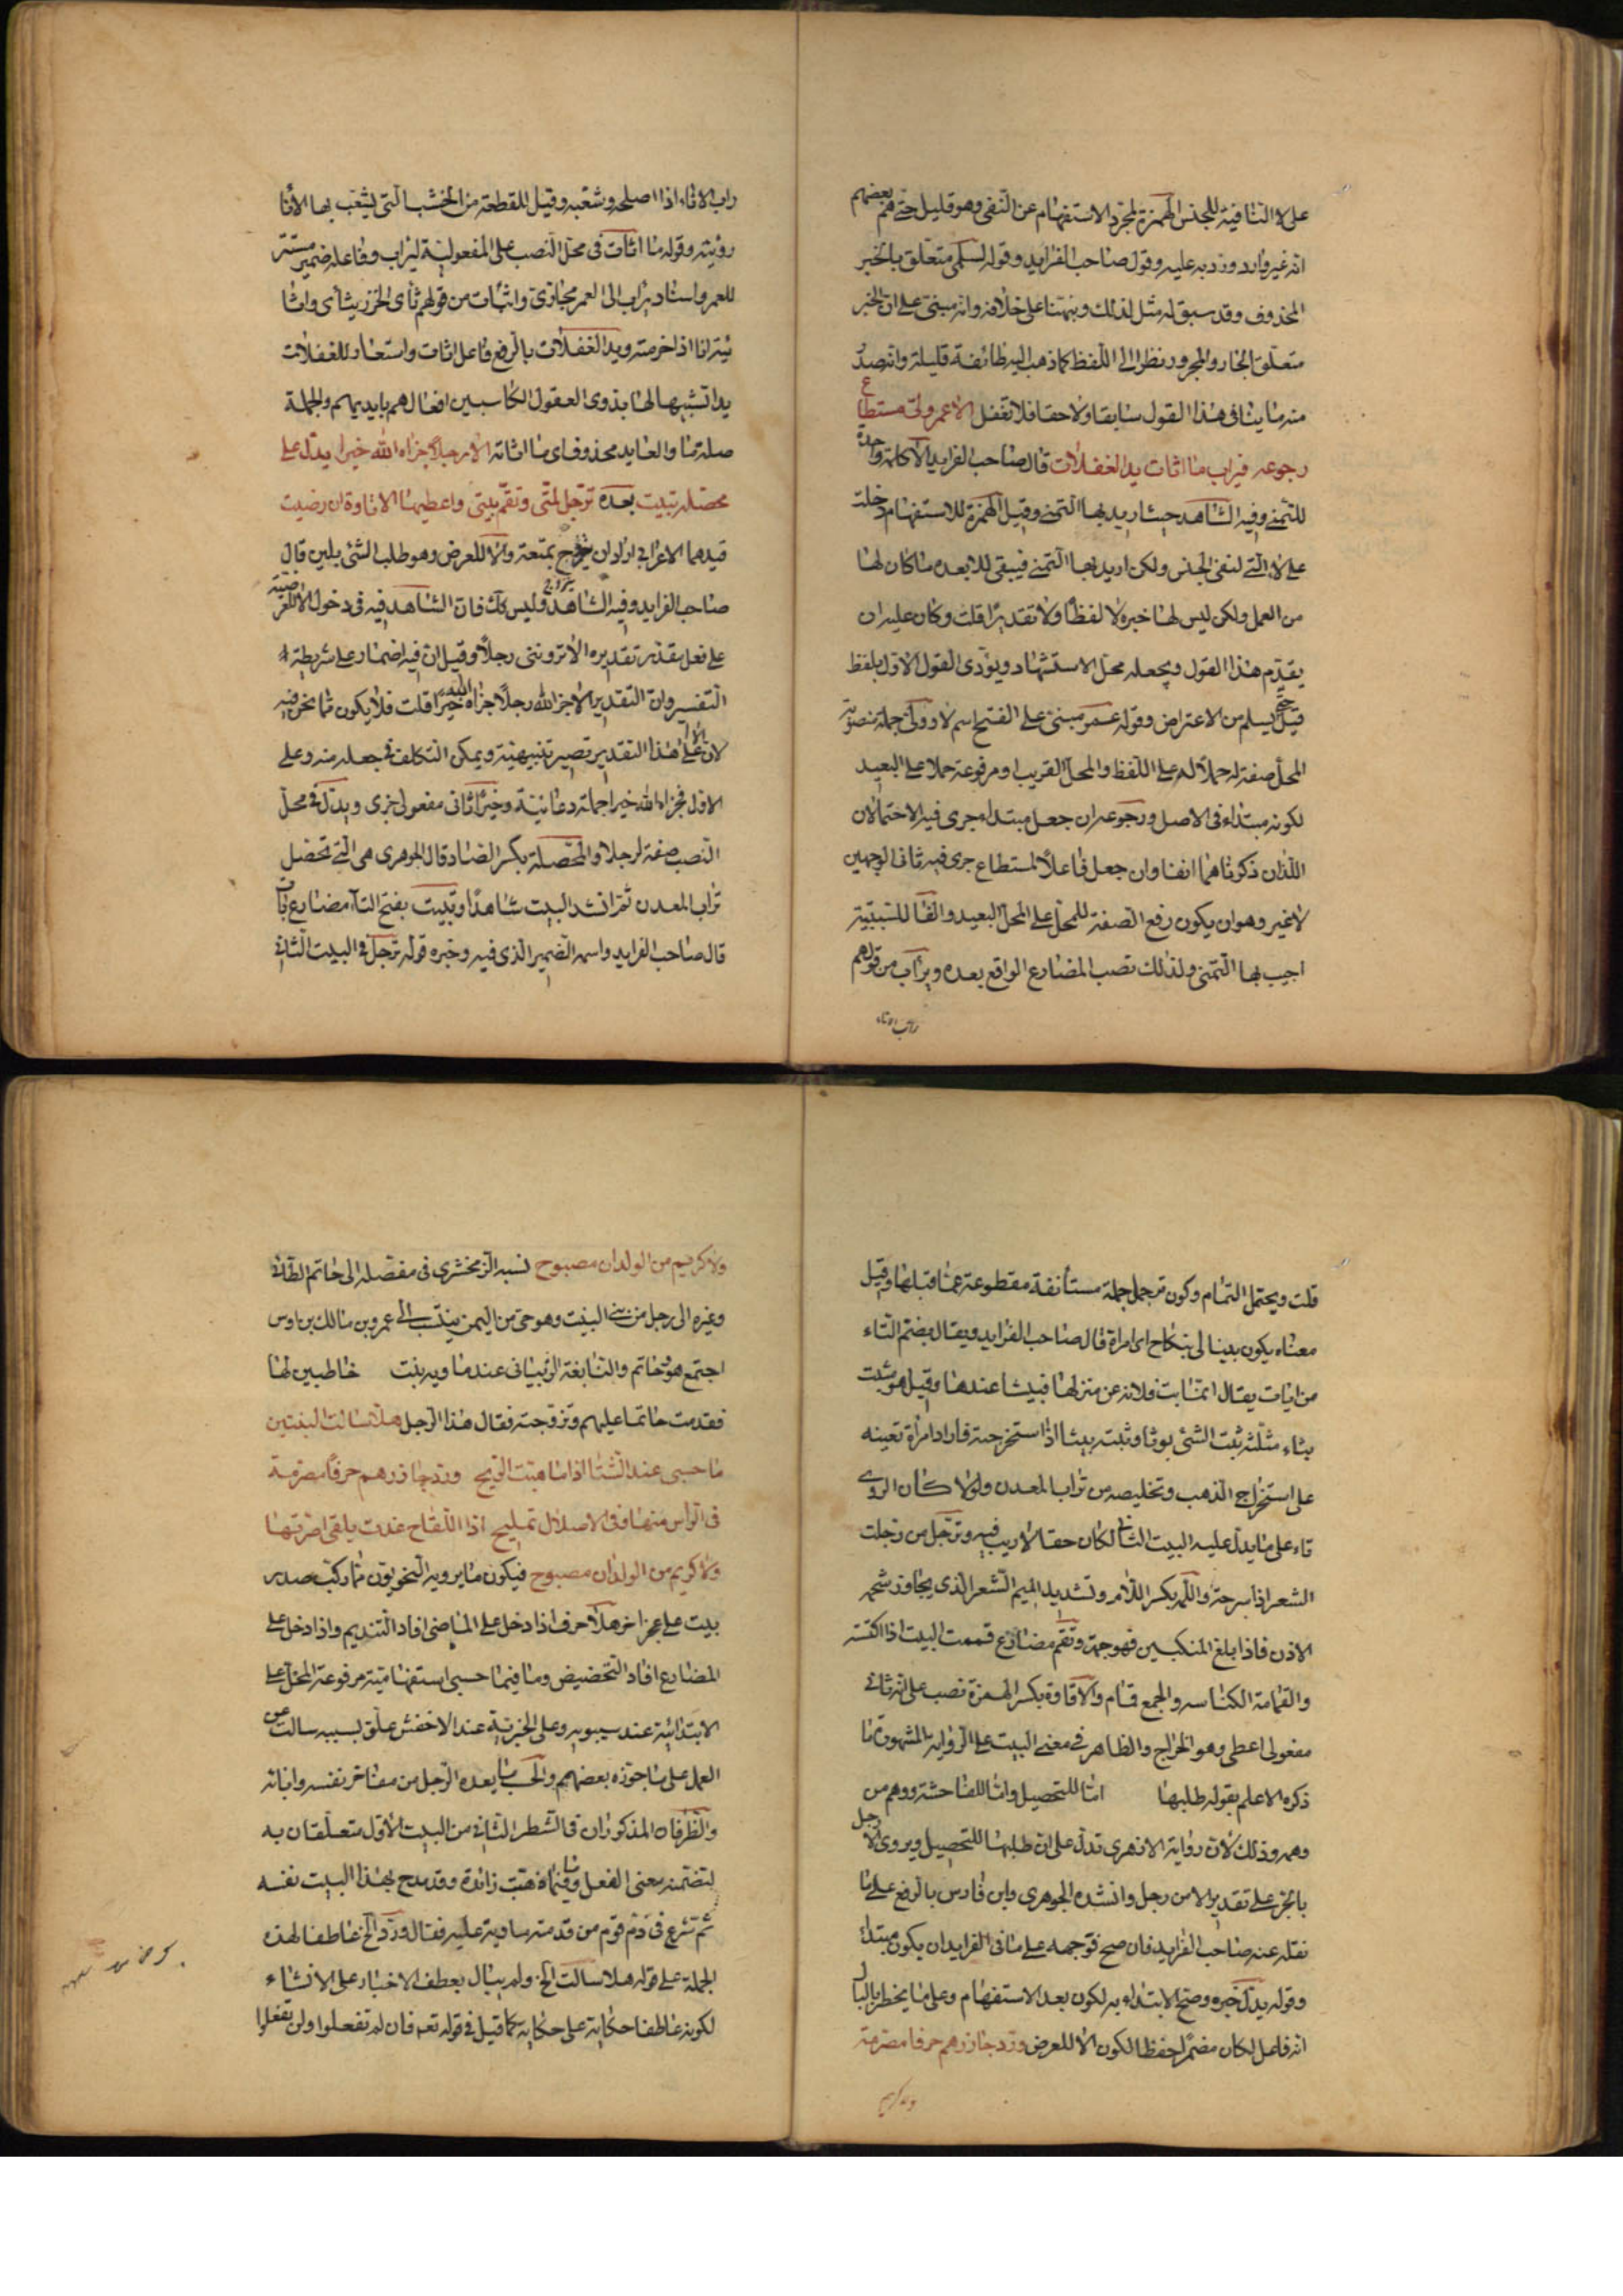 على لا النافية للجنس الهمزة لمجرد الاستفهام عن النفى وهو قليل حتى توهم بعضهم
انه غير وارد ورد به عليه وقول صاحب الفرايد وقوله لسلمى متعلق بالخبر
المحذوف وقد سبق له مثل لذلك ونبهتنا على خلافه وانه مبنى على ان الخبر
متعلق الجار والمجرور نظرا الى اللفظ كما ذهب اليه طائفة قليلة وانه صدر
منه ما ينافى هذا القول سابقا ولاحقا فلا تغفل الا عمر ولى مستطاع
رجوعه فيراب ما اثات يد الغفلات قال صاحب الفرايد الا كلمة واحدة
للتمنى وفيه الشاهد حيث اريد بها التمنى وقيل الهمزة للاستفهام دخلت
على لا التى لنفى الجنس ولكن اريد بها التمنى فيبقى للا بعده ما كان لها
من العمل ولكن ليس لها خبر لا لفظا ولا تقديرا قلت وكان عليه ان
يقدم هذا القول ويجعله محل الاستشهاد ويؤدى القول الاول بلفظ
قيل حتى يسلم من الاعتراض وقوله عمر مبنى على الفتح اسم لا وولى جملة منصوبة
المحل صفة له حملا له على اللفظ والمحل القريب او مرفوعة حملا على البعيد
لكونه مبتداء فى الاصل ورجوعه ان جعل مبتداء جرى فيه الاحتمالان
اللذان ذكرناهما انفا وان جعل فاعلا لمستطاع جرى فيه ثانى الوجهين
لا غير وهو ان يكون رفع الصفة للمحل على المحل البعيد والفا للسببية
اجيب بها التمنى ولذلك نصب المضارع الواقع بعده ويرأب من قولهم
راب الاناء
راب الاناء اذا اصلحه وشعبه وقيل للقطعة من الخشب التى يشعب بها الانا
رؤبة وقوله ما اثات فى محل النصب على المفعولية ليراب وفاعله ضمير مستتر
للعمر واسناد يراب الى العمر مجازى واثات من قولهم ثأى الخرز يثأى واثا
يئه انا اذا خرمته ويد الغفلات بالرفع فاعل اثات واستعار للغفلات
يدا تشبيها لها بذوى العقول الكاسبين افعالهم بايديهم والجملة
صلة ما والعايد محذوف اى ما اثاته الا رجلا جزاه الله خيرا يدل على
محصلة تبيت بعده ترجل لمتى وتقم بيتى واعطيها الاتاوة ان رضيت
قيدهما الاعرابى اراد ان يتزوج بمتعة والا للعرض وهو طلب الشئ بلين قال
صاحب الفرايد وفيه الشاهد وليس كذلك فان الشاهد فيه فى دخول الا للعرضية
على فعل مقدر تقديره الا تروننى رجلا وقيل ان فيه اضمار على شريطة
التفسير وان التقدير الا جزا الله رجلا جزاه الله خيرا قلت فلا يكون مما نحن فيه
لان الا على هذا التقدير تصير تنبيهية ويمكن التكلف فى جعله منه وعلى
الاول فجزاه الله خيرا جملة دعائية وخيرا ثانى مفعولى جزى ويدل فى محل
النصب صفة لرجلا والمحصلة بكسر الصاد قال الجوهرى هى التى تحصل
تراب المعدن ثم انشد البيت شاهدا وتبيت بفتح التاء مضارع بات
قال صاحب الفرايد واسمه الضمير الذى فيه وخبره قوله ترجل فى البيت الثانى
قلت ويحتمل التمام وكون ترجل جملة مستأنفة مقطوعة عما قبلها وقيل
معناه يكون بينا لى بنكاح اى امراة قال صاحب الفرايد ويقال بضم التاء
من ابات يقال اتتنا بت فلانه عن منزلها فبيتنا عندها وقيل هو تبيث
بثاء مثلثه بثت الشئ بوثا وثبته بيثا اذا استخرجته فاراد امراة تعينه
على استخراج الذهب وتخليصه من تراب المعدن ولولا كان الروى
تاء على ما يدل عليه البيت الثانى لكان حقا لا ريب فيه وترجل من رجلت
الشعر اذا سرحته واللمة بكسر اللام وتشديد الميم الشعر الذى يجاوز شحمه
الاذن فاذا بلغ المنكبين فهو جمة وتقم مضارع قممت البيت اذا كنسته
والقمامة الكناسه والجمع قمام والاتاوة بكسر الهمزة نصب على انه ثانى
مفعولى اعطى وهو الخراج والظاهر فى معنى البيت على الرواية المشهورة ما
ذكره الاعلم بقوله طلبها اما للتحصيل واما للفاحشة ووهم من
وهمه وذلك لان رواية الازهرى تدل على ان طلبها للتحصيل ويروى الا رجل
بالجر على تقدير الا من رجل وانشده الجوهرى وابن فارس بالرفع على ما
نقله عنه صاحب الفرايد فان صح فتوجهه على ما فى الفرايد ان يكون مبتداء
وقوله يدل خبره وصح الابتداء به لكون بعد الاستفهام وعلى ما يخطر بالبال
انه فاعل لكان مضمرا حفظا لكون الا للعرض ورد جازرهم حرفا مصرمة
ولا كريم
ولا كريم من الولدان مصبوح نسبه الزمخشرى فى مفصله الى حاتم الطائى
وغيره الى رجل من بنى النبيت وهو حى من اليمن ينسب الى عمرو بن مالك بن اوس
اجتمع هو وحاتم والنابغة الذبيانى عند ماوية بنت خاطبين لها
فقدمت حاتما عليهم وتزوجته فقال هذا الرجل هلا سالت النبتين
ما حسبى عند الشتا اذا ما هبت الريح ورد جازرهم حرفا مصرمة
فى الراس منها وفى الاصلال تمليح اذا اللقاح غدت يلقى اصرتها
ولا كريم من الولدان مصبوح فيكون ما يرويه النحويون مما ركب صدر
بيت على عجز اخر هلا حرف اذا دخل على الماضى افاد التنديم واذا دخل على
المضارع افاد التحضيض وما فيما حسبى استفهامية مرفوعة المحل على
الابتدائية عند سيبويه وعلى الخبرية عند الاخفش علق بسببه سالت عن
العمل على ما جوزه بعضهم والحسب ما يعده الرجل من مفاخر نفسه وابائه
والظرفان المذكوران فى الشطر الثانى من البيت الاول متعلقان به
لتضمنه معنى الفعل وما فيما هبت زائدة وقد مدح بهذا البيت نفسه
ثم شرع فى ذم قوم من قدمته ماوية عليه فقال ورد الخ عاطفا لهذه
الجملة على قوله هلا سالت الخ ولم يبال بعطف الاخبار على الانشاء
لكونه عاطفا حكاية على حكاية كما قيل فى قوله تعم فان لم تفعلوا ولن تفعلوا